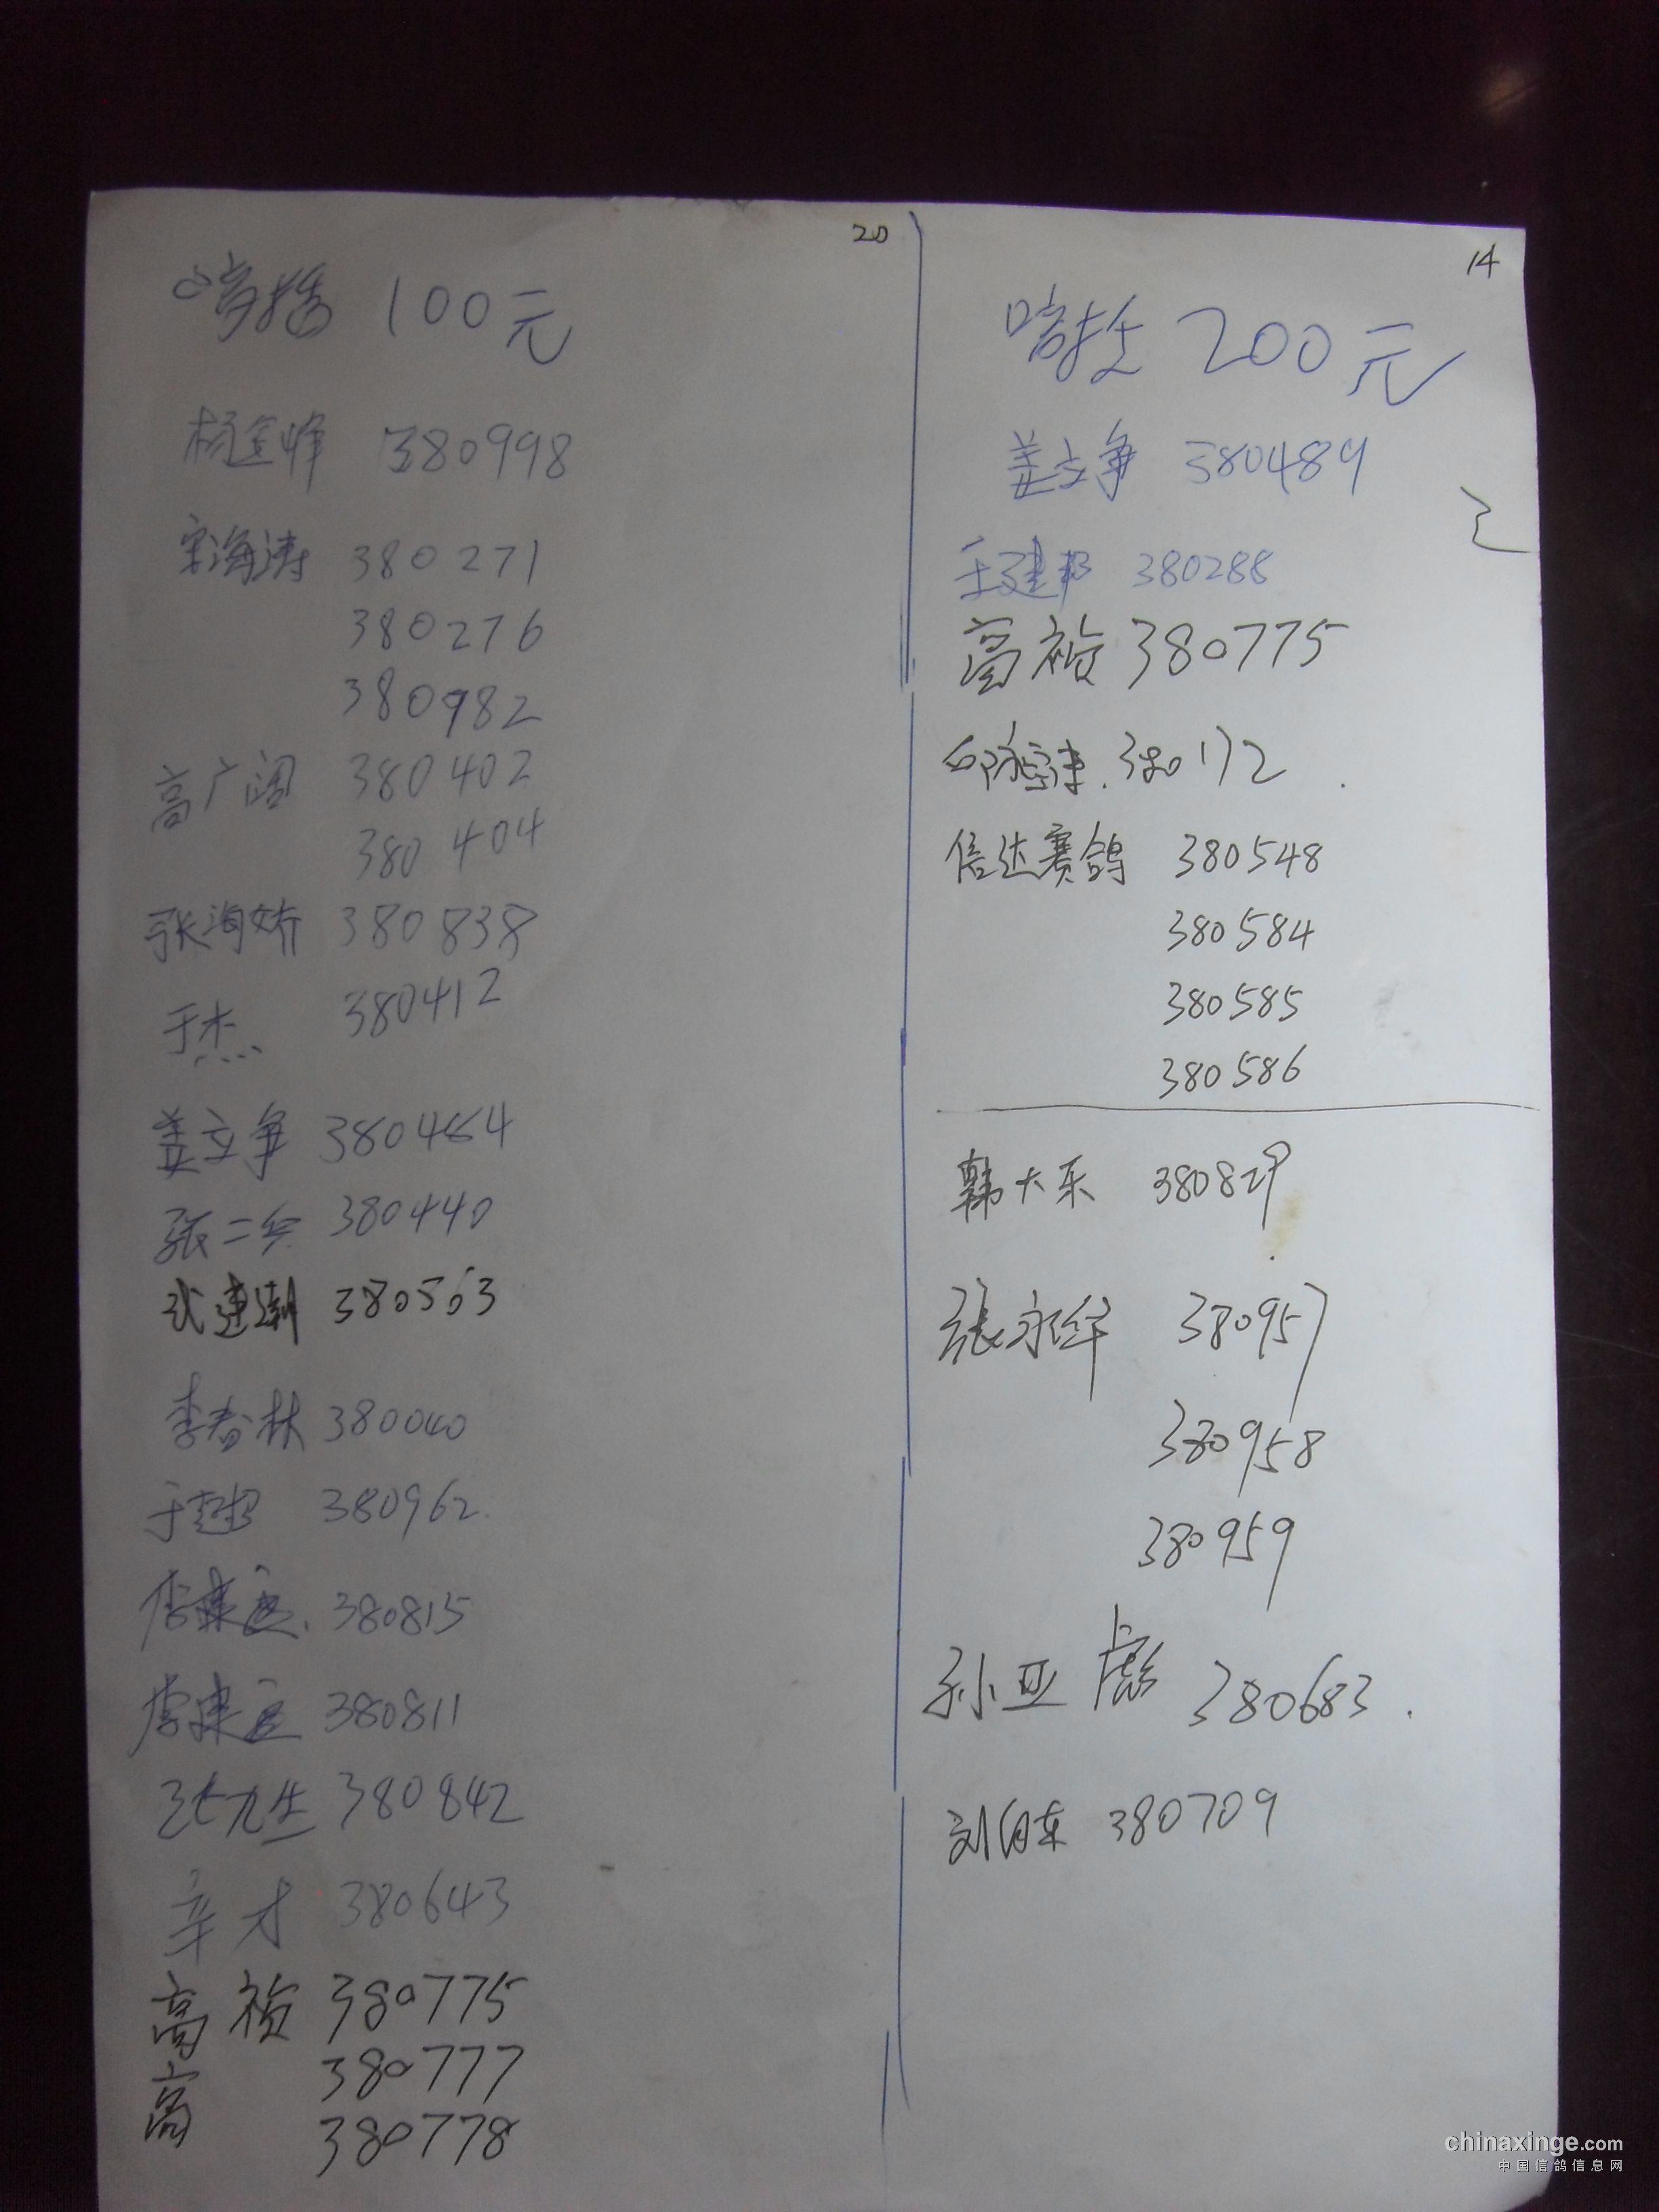 20
100元
杨金峰 380998
宋海涛 380271
380276
380982
高广阔 380402
380404
张海娇 380838
于杰 380412
姜立争 380484
张二兵 380440
武连潮 380563
李春林 380040
于超 380962
380815
380811
张九生 380842
辛才 380643
高祯 380775
高 380777
380778
14
200元
姜立争 380489
于建邦 380288
高祯 380775
380172
信达赛鸽 380548
380584
380585
380586
韩大乐 380829
张永华 380957
380958
380959
孙亚彪 380683
刘伯东 380709
chinaxinge.com
中国信鸽信息网